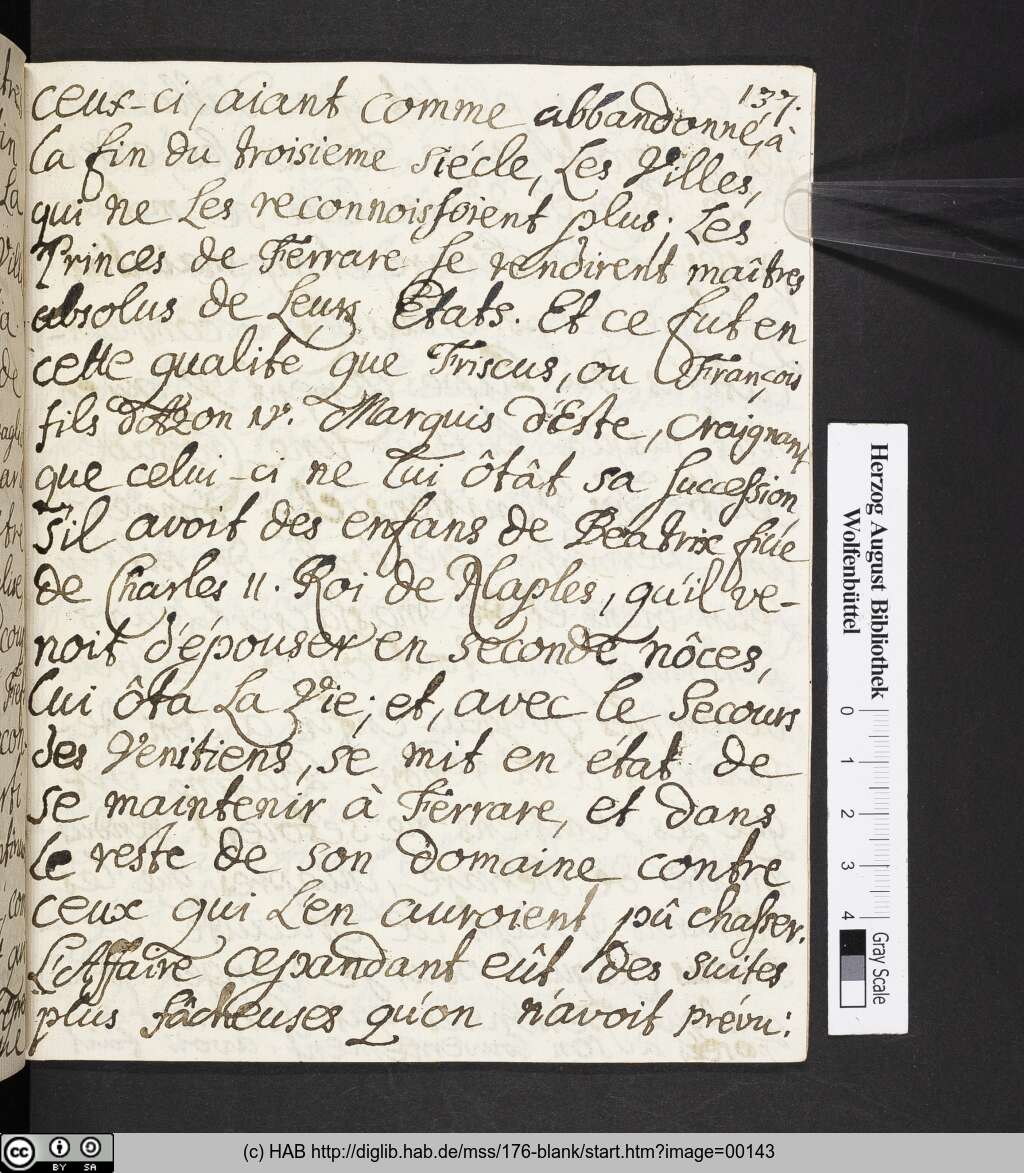 137.
ceux-ci, aiant comme abbandonné, à
la fin du troisieme siécle, Les Villes,
qui ne Les reconnoissoient plus; Les
Princes de Ferrare se rendirent maîtres
absolus de Leurs Etats. Et ce fut en
cette qualité que Friscus, ou François
fils d'Azon IV. Marquis d'Este, craignant
que celui-ci ne lui ôtât sa succession,
s'il avoit des enfans de Beatrix fille
de Charles II. Roi de Naples, qu'il ve-
noit d'épouser en seconde nôces,
lui ôta La Vie; et, avec le Secours
des Venitiens, se mit en état de
se maintenir à Ferrare, et dans
le reste de son domaine contre
ceux qui L'en auroient pû chasser.
L'Affaire cepandant eût des suites
plus fâcheuses qu'on n'avoit prévu:
Herzog August Bibliothek
Wolfenbüttel
0 1 2 3 4
Gray Scale
cc BY SA
(c) HAB http://diglib.hab.de/mss/176-blank/start.htm?image=00143